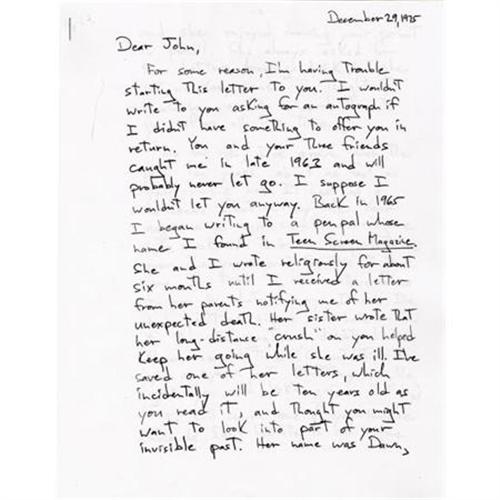 December 29, 1975
Dear John,
For some reason, I'm having trouble
starting this letter to you. I wouldn't
write to you asking for an autograph if
I didn't have something to offer you in
return. You and your three friends
caught me in late 1963 and will
probably never let go. I suppose I
wouldn't let you anyway. Back in 1965
I began writing to a penpal whose
name I found in Teen Screen Magazine.
She and I wrote religiously for about
six months until I received a letter
from her parents notifying me of her
unexpected death. Her sister wrote that
her long-distance "crush" on you helped
keep her going while she was ill. I've
saved one of her letters, which
incidentally will be ten years old as
you read it, and thought you might
want to look into part of your
invisible past. Her name was Dawn,